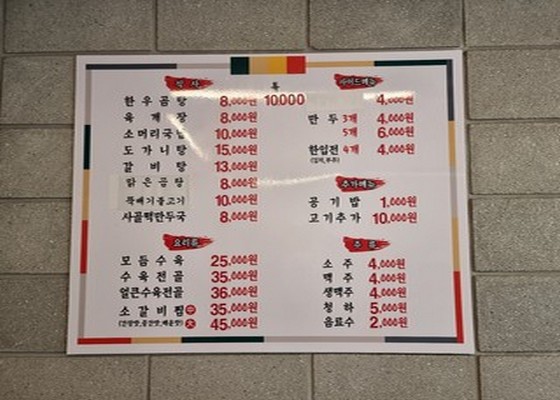 식 사
특
한우곰탕 8,000원 10000
육개장 8,000원
소머리국밥 10,000원
도가니탕 15,000원
갈비탕 13,000원
맑은곰탕 8,000원
뚝배기불고기 10,000원
사골떡만두국 8,000원
요리류
모듬수육 25,000원
수육전골 35,000원
얼큰수육전골 36,000원
소갈비찜 中 35,000원
(간장맛,중간맛,매운맛) 大 45,000원
사이드메뉴
4,000원
만두 3개 4,000원
5개 6,000원
한입전 4개 4,000원
추가메뉴
공기밥 1,000원
고기추가 10,000원
주 류
소주 4,000원
맥주 4,000원
생맥주 4,000원
청하 5,000원
음료수 2,000원